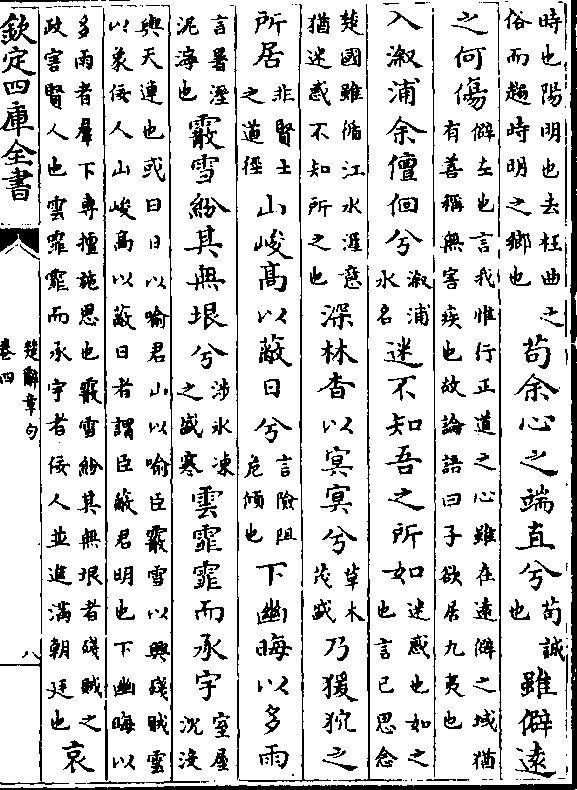 時也陽明也去枉曲之俗而趨時明之鄉也苟余心之端直兮苟誠也雖僻遠
之何傷僻左也言我惟行正道之心雖在遠僻之域猶有善稱無害疾也故論語曰子欲居九夷也
入溆浦余儃佪兮溆浦水名迷不知吾之所如迷惑也如之也言已思念
楚國雖循江水涯意猶迷惑不知所之也深林杳以冥冥兮草木茂盛乃猨狖之
所居非賢士之道徑山峻高以蔽日兮言險阻危傾也下幽晦以多雨
言暑溼泥濘也霰雪紛其無垠兮涉氷凍之盛寒雲霏霏而承宇室屋沈沒
與天連也或曰日以喻君山以喻臣霰雪以興殘賊雲以象佞人山峻高以蔽日者謂臣蔽君明也下幽晦以
多雨者羣下專擅施恩也霰雪紛其無垠者殘賊之政害賢人也雲霏霏而承宇者佞人並進滿朝廷也哀
欽定四庫全書
楚辭章句
卷四
八